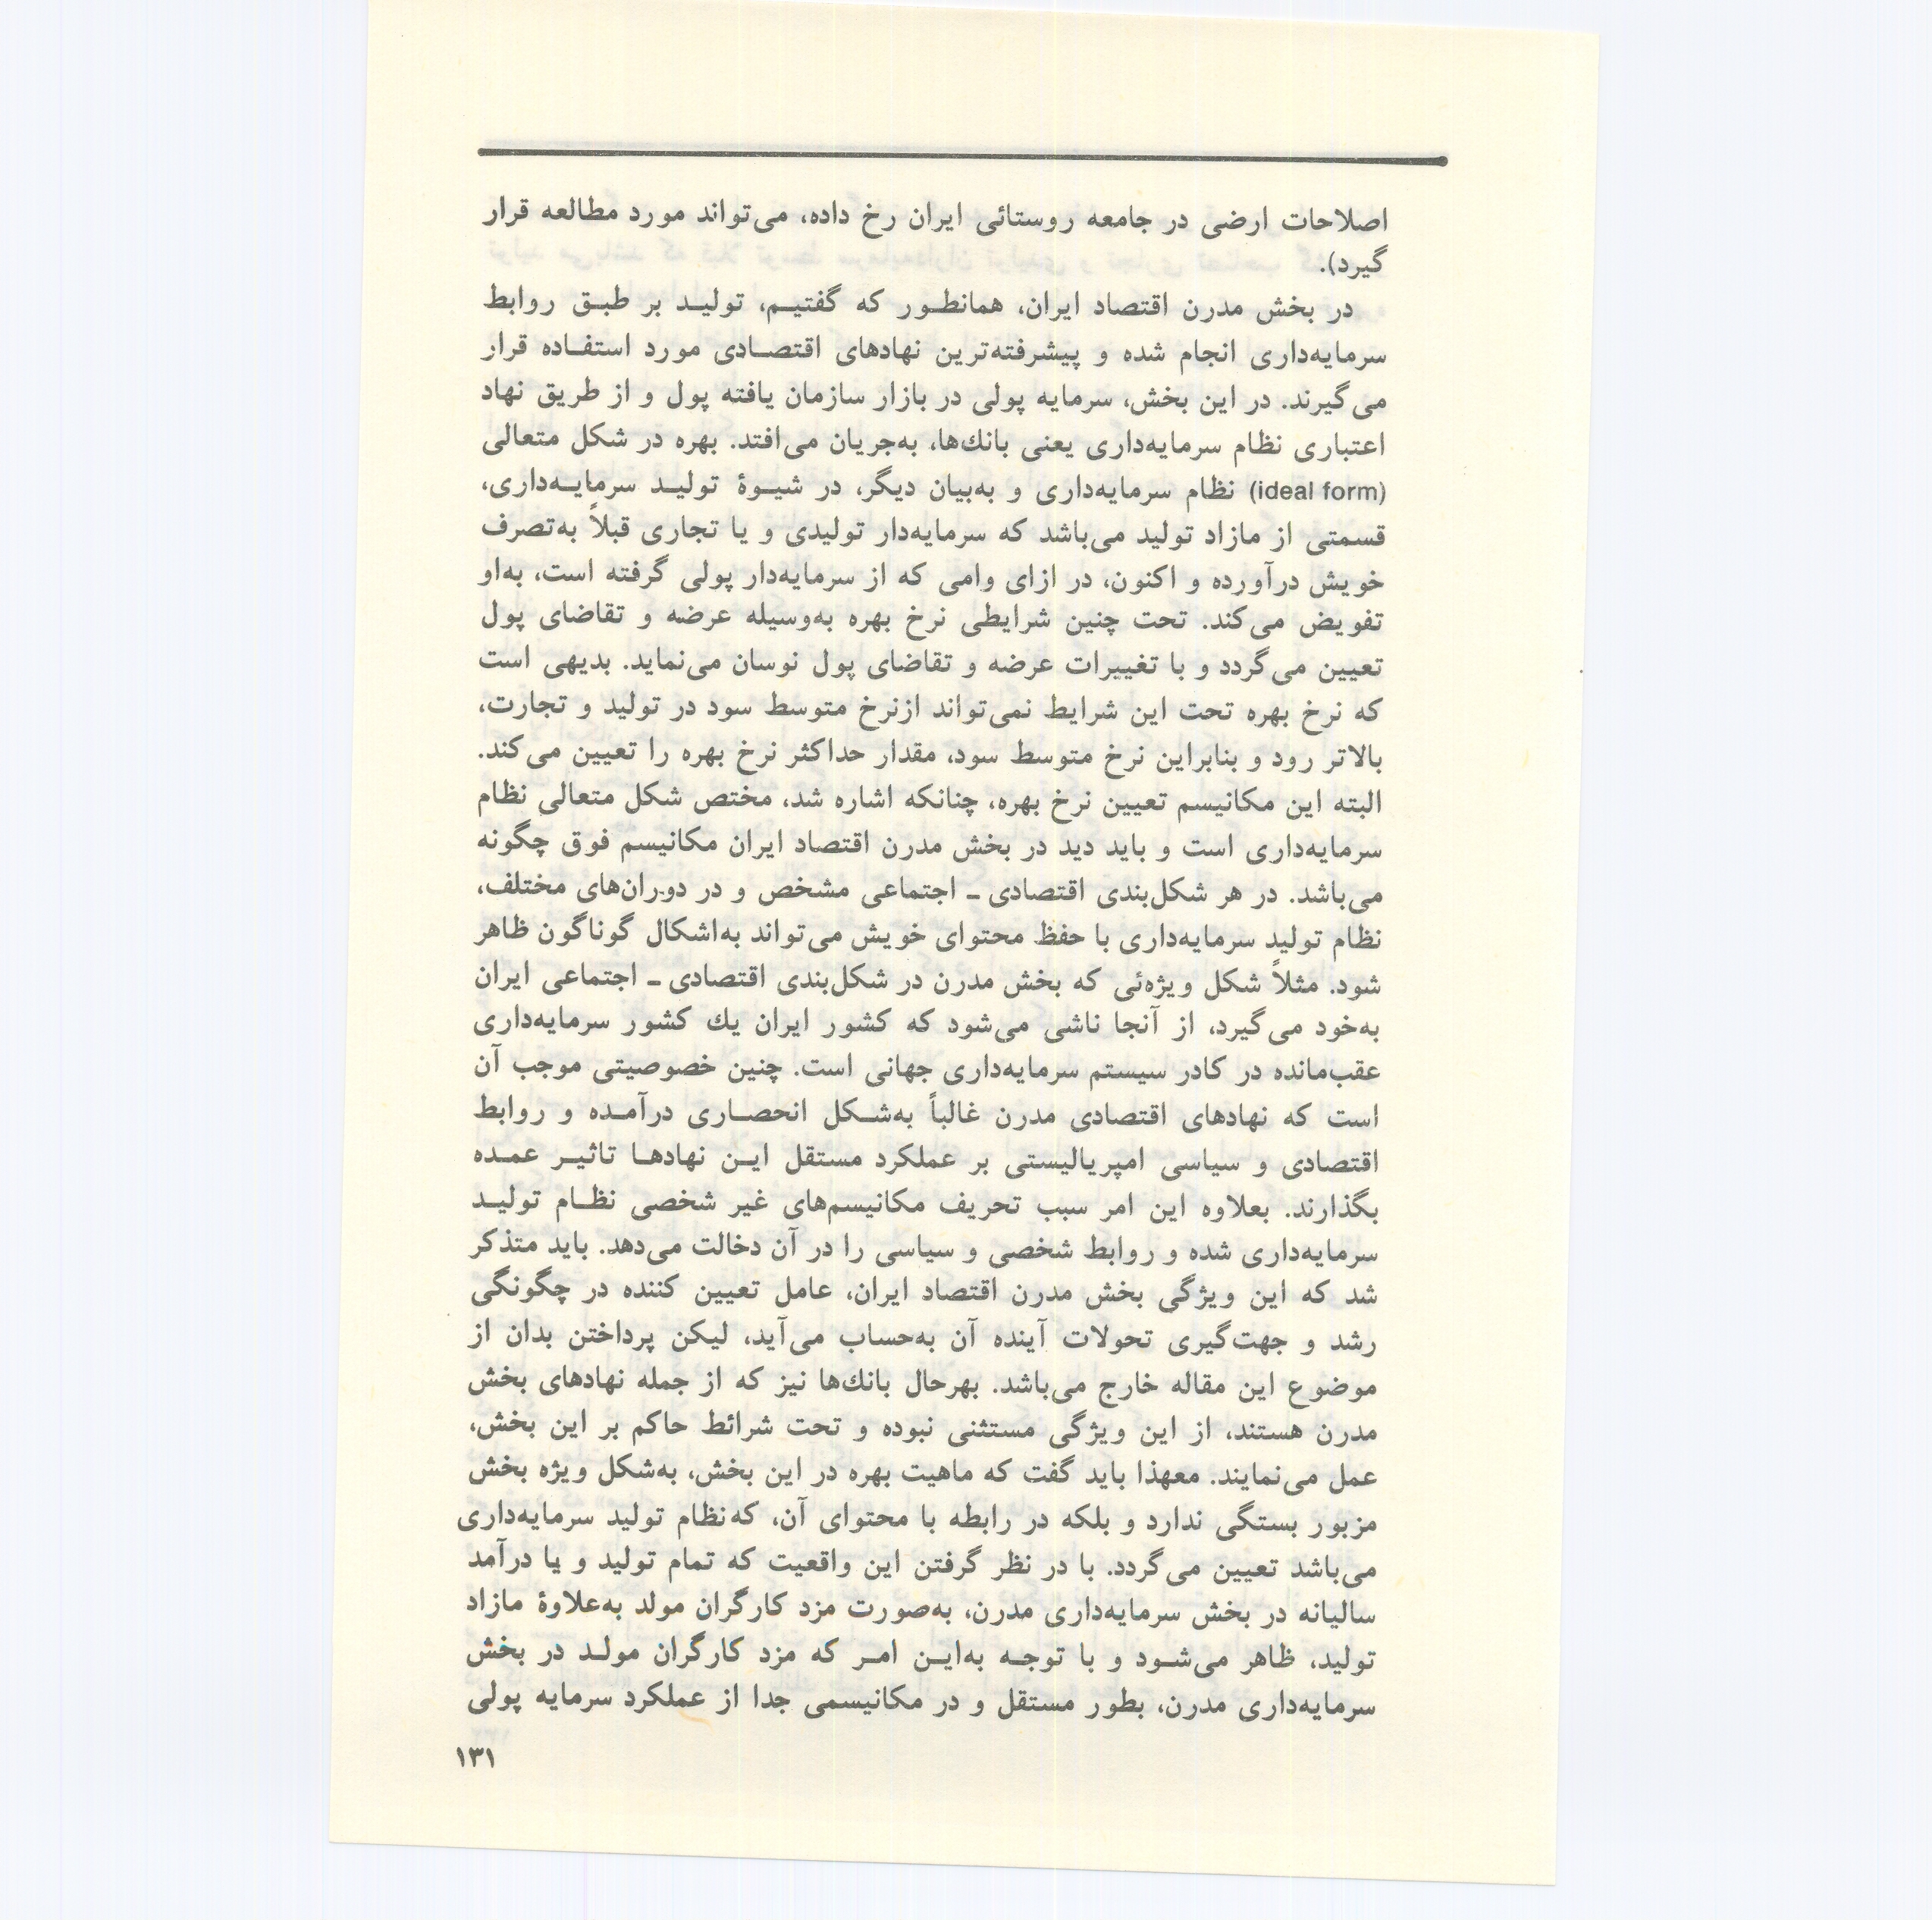 اصلاحات ارضی در جامعه روستائی ایران رخ داده، می‌تواند مورد مطالعه قرار
گیرد).
در بخش مدرن اقتصاد ایران، همانطور که گفتیم، تولید بر طبق روابط
سرمایه‌داری انجام شده و پیشرفته‌ترین نهادهای اقتصادی مورد استفاده قرار
می‌گیرند. در این بخش، سرمایه پولی در بازار سازمان یافته پول و از طریق نهاد
اعتباری نظام سرمایه‌داری یعنی بانك‌ها، به‌جریان می‌افتد. بهره در شکل متعالی
(ideal form) نظام سرمایه‌داری و به‌بیان دیگر، در شیوۀ تولید سرمایه‌داری،
قسمتی از مازاد تولید می‌باشد که سرمایه‌دار تولیدی و یا تجاری قبلاً به‌تصرف
خویش درآورده و اکنون، در ازای وامی که از سرمایه‌دار پولی گرفته است، به‌او
تفویض می‌کند. تحت چنین شرایطی نرخ بهره به‌وسیله عرضه و تقاضای پول
تعیین می‌گردد و با تغییرات عرضه و تقاضای پول نوسان می‌نماید. بدیهی است
که نرخ بهره تحت این شرایط نمی‌تواند ازنرخ متوسط سود در تولید و تجارت،
بالاتر رود و بنابراین نرخ متوسط سود، مقدار حداکثر نرخ بهره را تعیین می‌کند.
البته این مکانیسم تعیین نرخ بهره، چنانکه اشاره شد، مختص شکل متعالی نظام
سرمایه‌داری است و باید دید در بخش مدرن اقتصاد ایران مکانیسم فوق چگونه
می‌باشد. در هر شکل‌بندی اقتصادی ـ اجتماعی مشخص و در دوران‌های مختلف،
نظام تولید سرمایه‌داری با حفظ محتوای خویش می‌تواند به‌اشکال گوناگون ظاهر
شود. مثلاً شکل ویژه‌ئی که بخش مدرن در شکل‌بندی اقتصادی ـ اجتماعی ایران
به‌خود می‌گیرد، از آنجا ناشی می‌شود که کشور ایران یك کشور سرمایه‌داری
عقب‌مانده در کادر سیستم سرمایه‌داری جهانی است. چنین خصوصیتی موجب آن
است که نهادهای اقتصادی مدرن غالباً به‌شکل انحصاری درآمده و روابط
اقتصادی و سیاسی امپریالیستی بر عملکرد مستقل این نهادها تاثیر عمده
بگذارند. بعلاوه این امر سبب تحریف مکانیسم‌های غیر شخصی نظام تولید
سرمایه‌داری شده و روابط شخصی و سیاسی را در آن دخالت می‌دهد. باید متذکر
شد که این ویژگی بخش مدرن اقتصاد ایران، عامل تعیین کننده در چگونگی
رشد و جهت‌گیری تحولات آینده آن به‌حساب می‌آید، لیکن پرداختن بدان از
موضوع این مقاله خارج می‌باشد. بهرحال بانك‌ها نیز که از جمله نهادهای بخش
مدرن هستند، از این ویژگی مستثنی نبوده و تحت شرائط حاکم بر این بخش،
عمل می‌نمایند. معهذا باید گفت که ماهیت بهره در این بخش، به‌شکل ویژه بخش
مزبور بستگی ندارد و بلکه در رابطه با محتوای آن، که‌نظام تولید سرمایه‌داری
می‌باشد تعیین می‌گردد. با در نظر گرفتن این واقعیت که تمام تولید و یا درآمد
سالیانه در بخش سرمایه‌داری مدرن، به‌صورت مزد کارگران مولد به‌علاوۀ مازاد
تولید، ظاهر می‌شود و با توجه به‌این امر که مزد کارگران مولد در بخش
سرمایه‌داری مدرن، بطور مستقل و در مکانیسمی جدا از عملکرد سرمایه پولی
۱۳۱